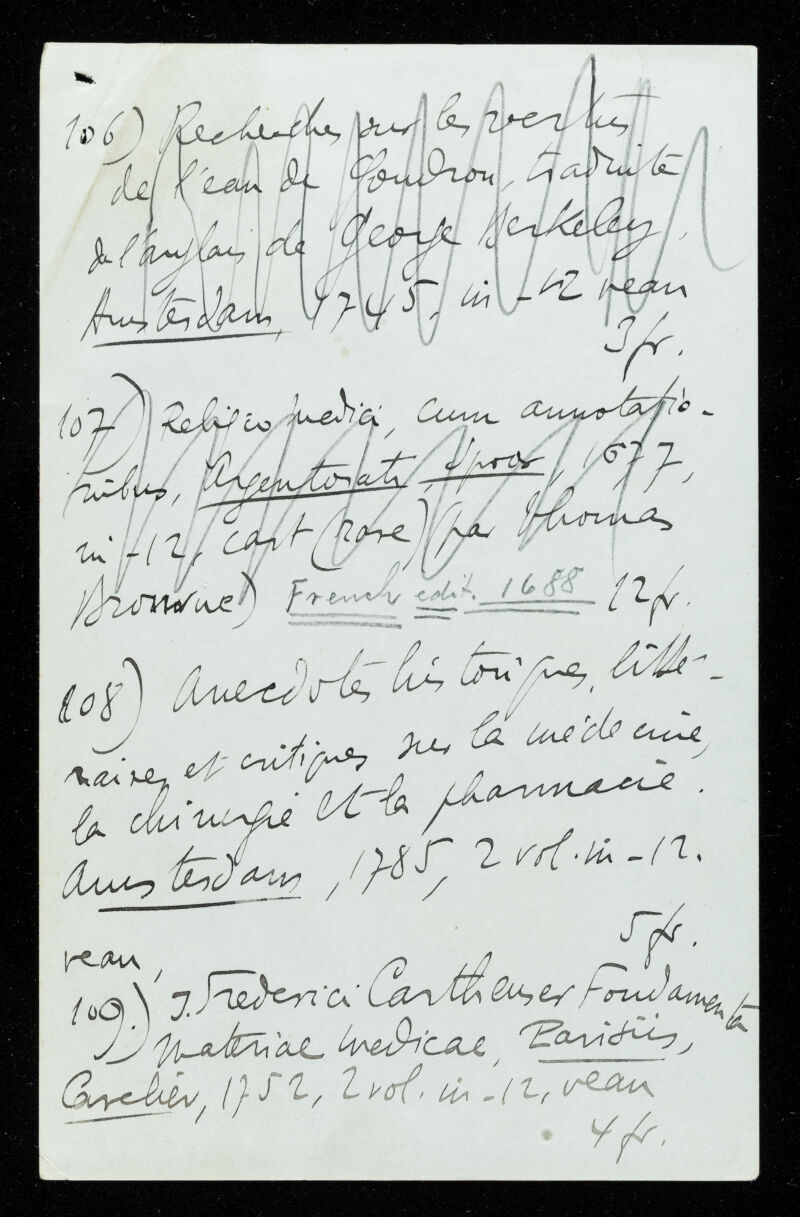 106) Recherches sur les vertus
de l'eau de Goudron, traduite
de l'anglais de George Berkeley,
Amsterdam, 1745, in-12 veau
3 fr.
107) Religio medici, cum annotatio-
nibus, Argentorati, Spoor, 1677,
in-12, cart (rare) (par Thomas
Browne) French edit. 1688 12 fr.
108) Anecdotes historiques, litté-
raires et critiques sur la médecine,
la chirurgie et la pharmacie.
Amsterdam, 1785, 2 vol. in-12.
5 fr.
veau,
109.) J. Frederici Cartheuser Fondamenta
materiae medicae, Parisiis,
Cavelier, 1752, 2 vol. in-12, veau
4 fr.